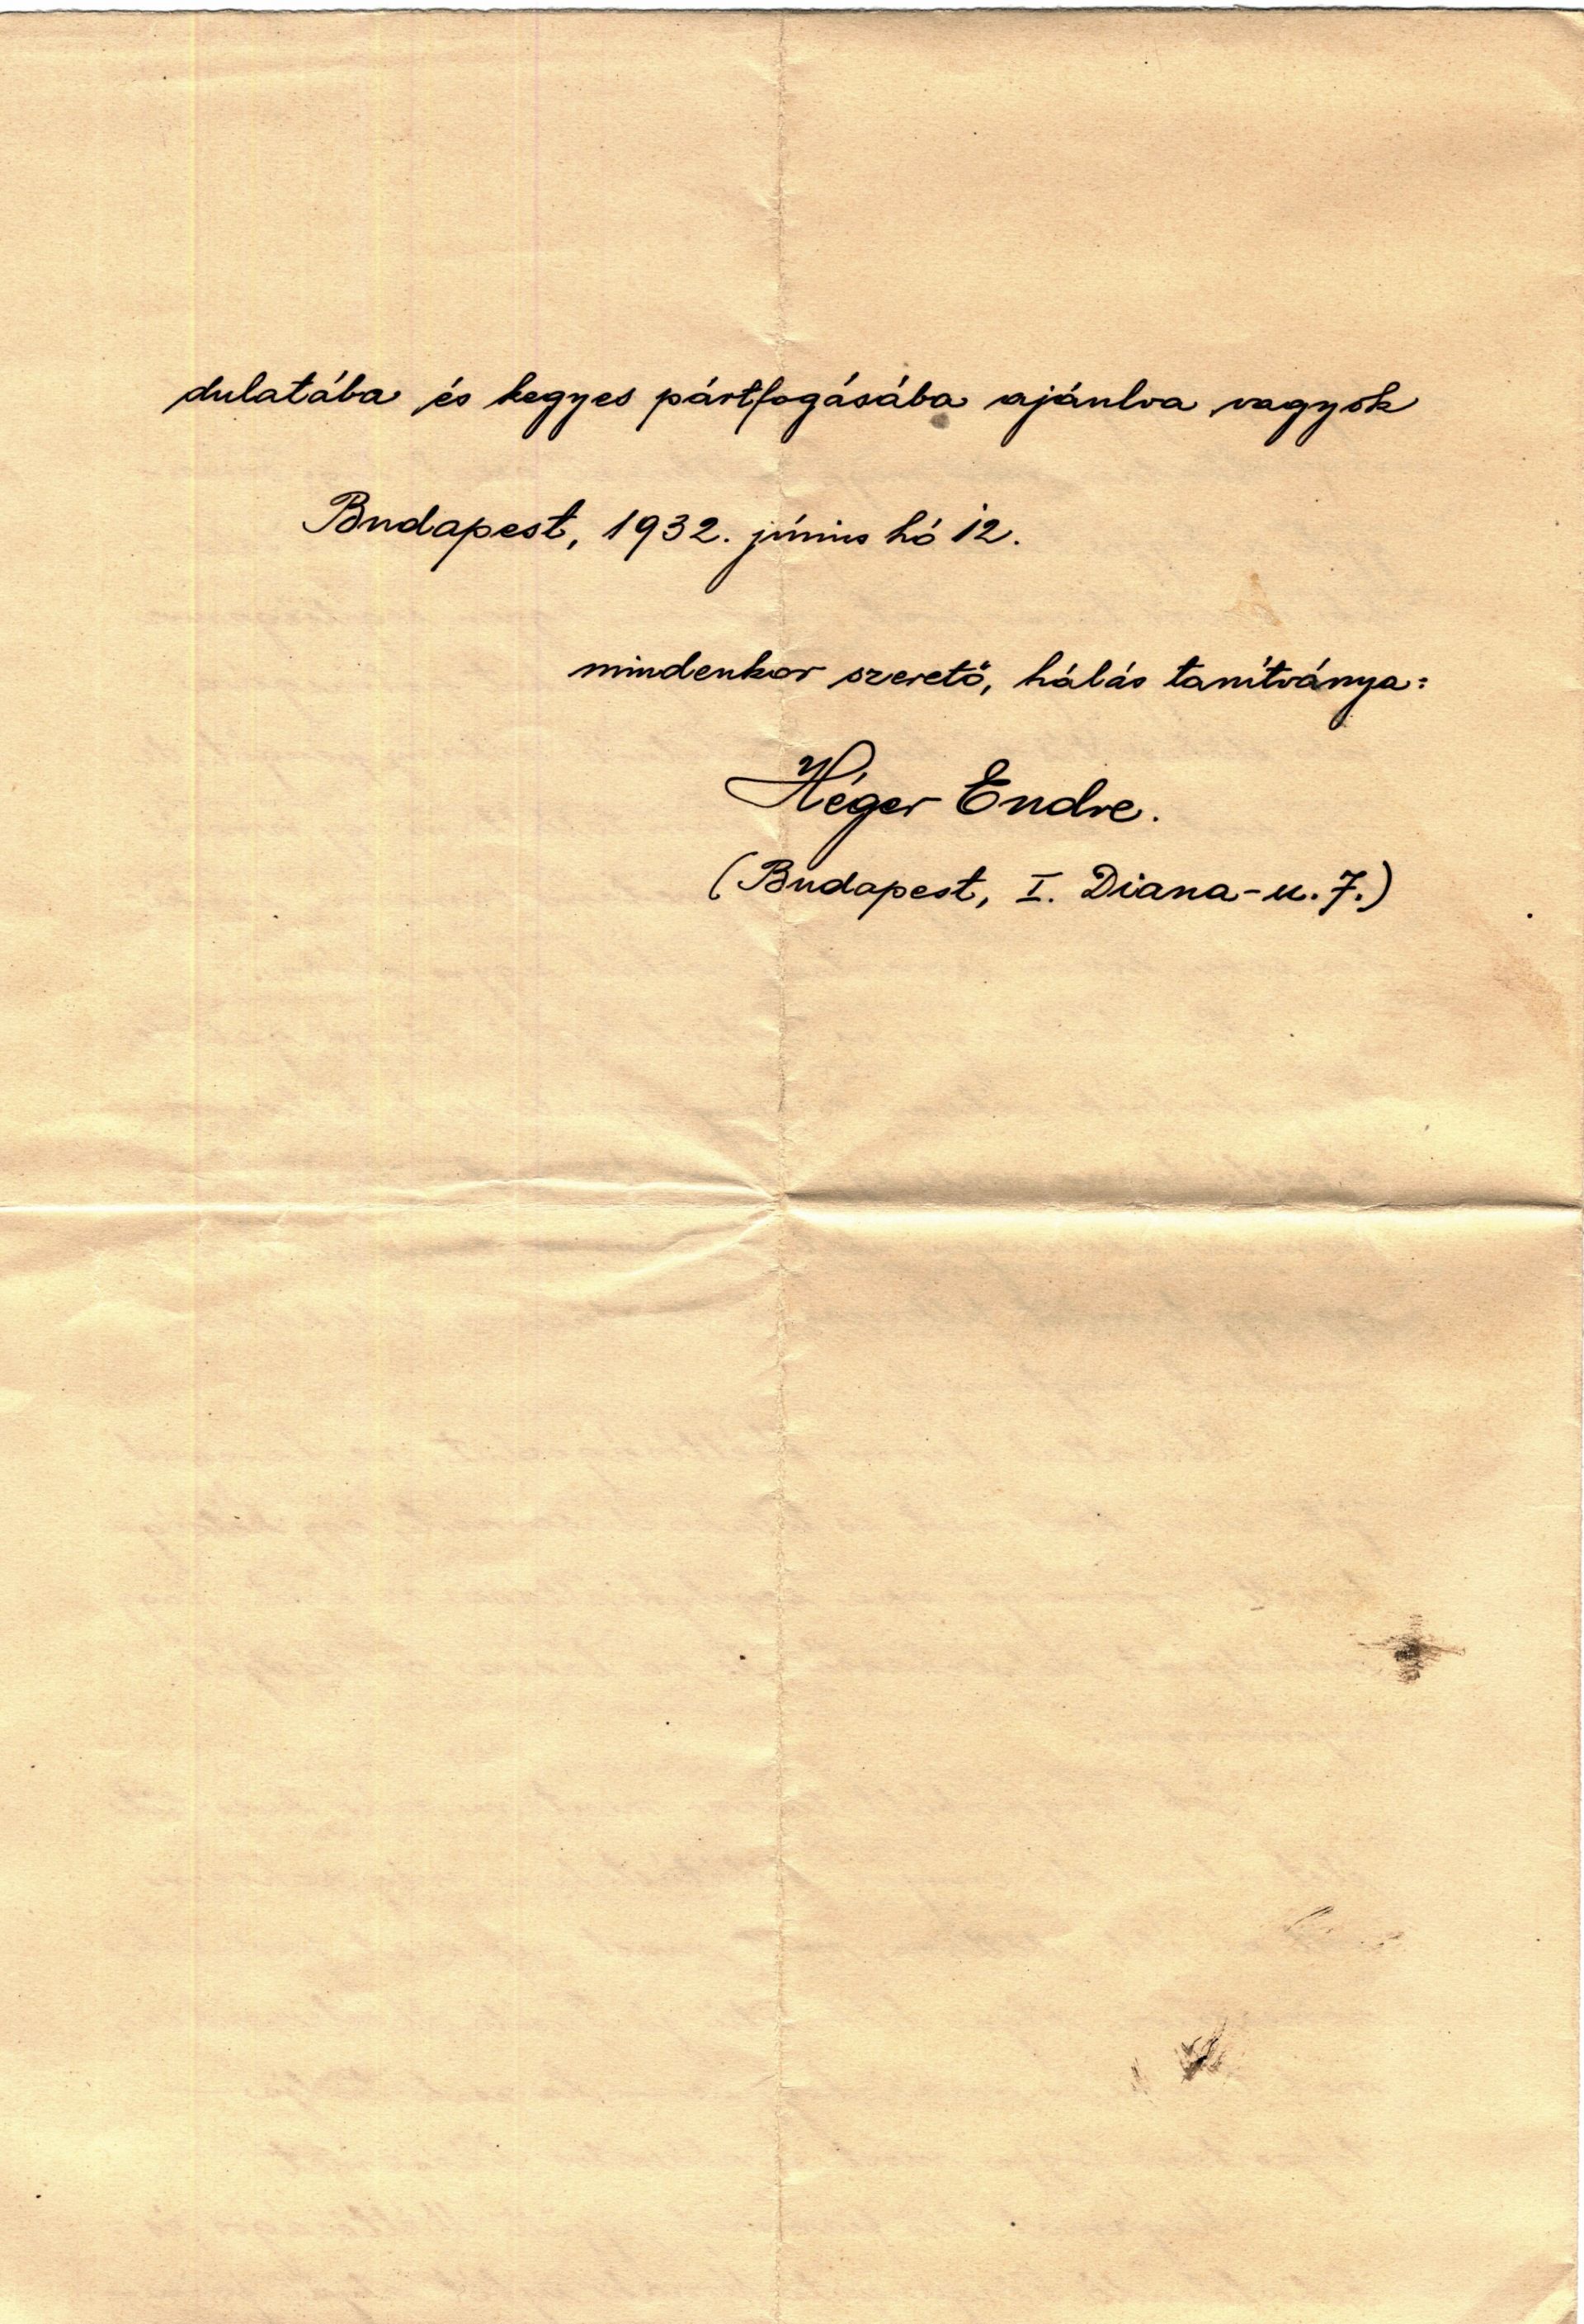 dulatába és kegyes pártfogásába ajánlva vagyok
Budapest, 1932. június hó 12.
mindenkor szerető, hálás tanítványa:
Héger Endre.
(Budapest, I. Diana-u. 7.)